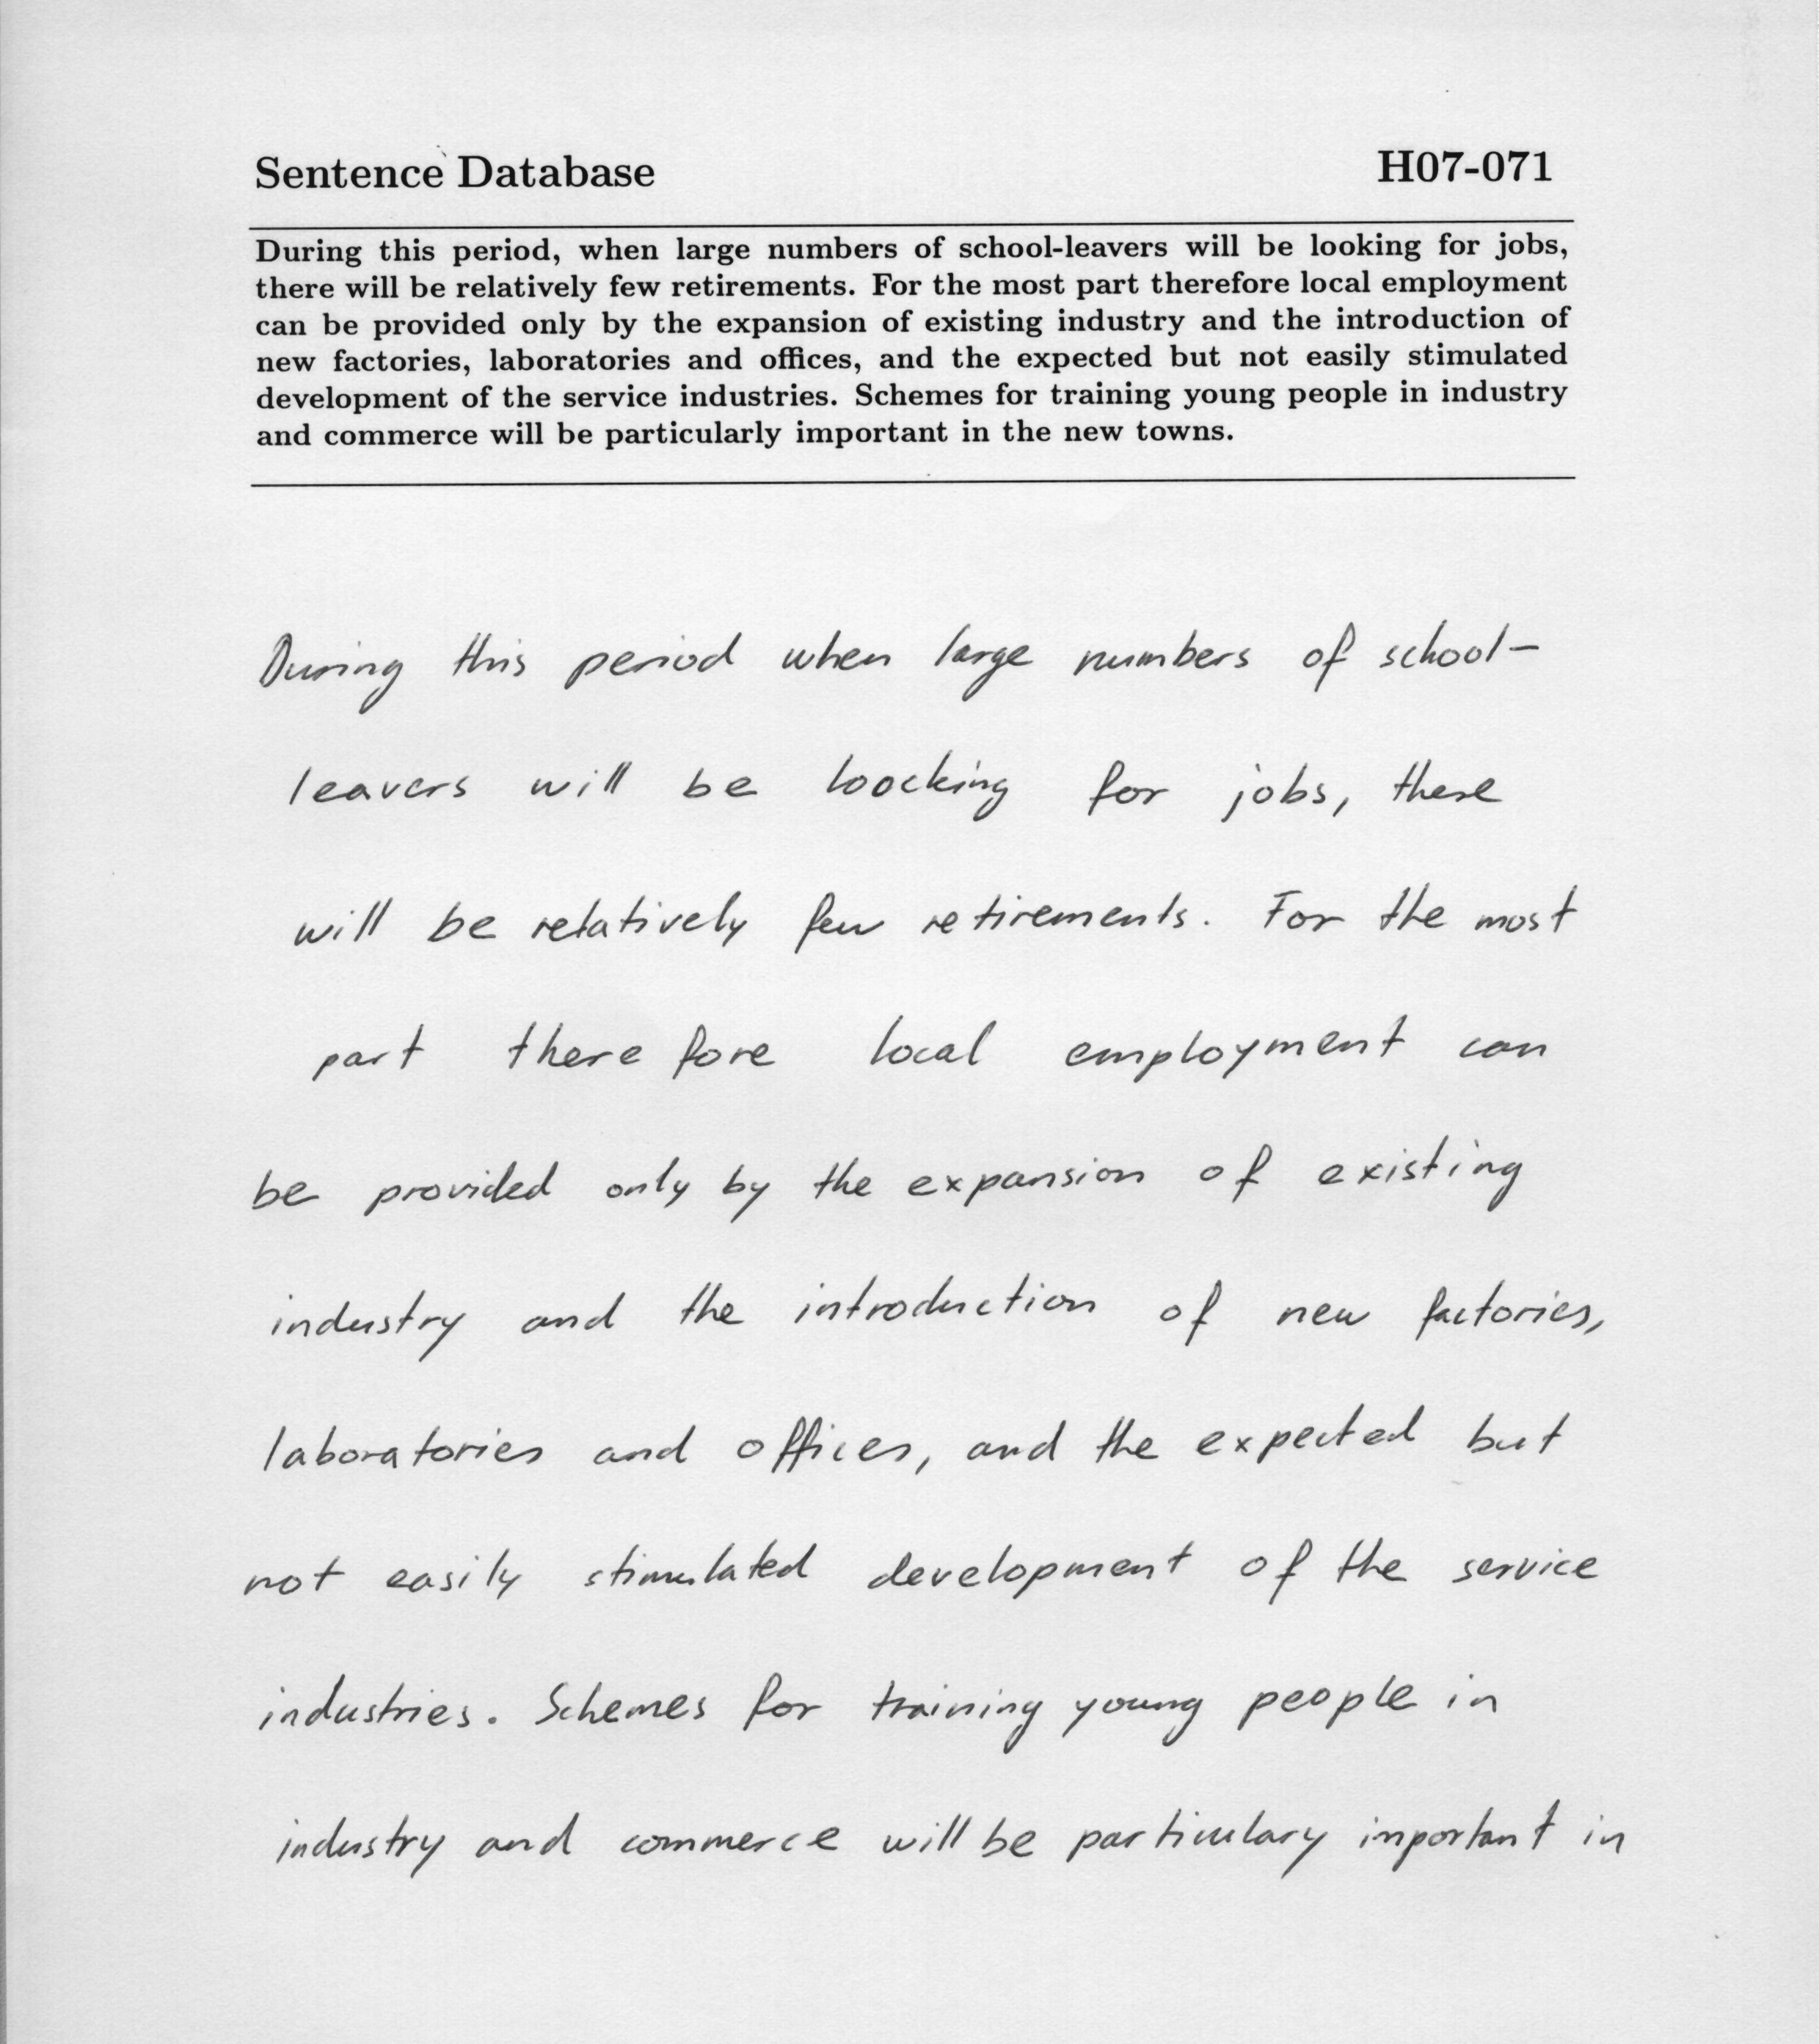 Sentence Database
H07-071
During this period, when large numbers of school-leavers will be looking for jobs,
there will be relatively few retirements. For the most part therefore local employment
can be provided only by the expansion of existing industry and the introduction of
new factories, laboratories and offices, and the expected but not easily stimulated
development of the service industries. Schemes for training young people in industry
and commerce will be particularly important in the new towns.
During this period when large numbers of school-
leavers will be loocking for jobs, there
will be relatively few retirements. For the most
part therefore local employment can
be provided only by the expansion of existing
industry and the introduction of new factories,
laboratories and offices, and the expected but
not easily stimulated development of the service
industries. Schemes for training young people in
industry and commerce will be particulary important in